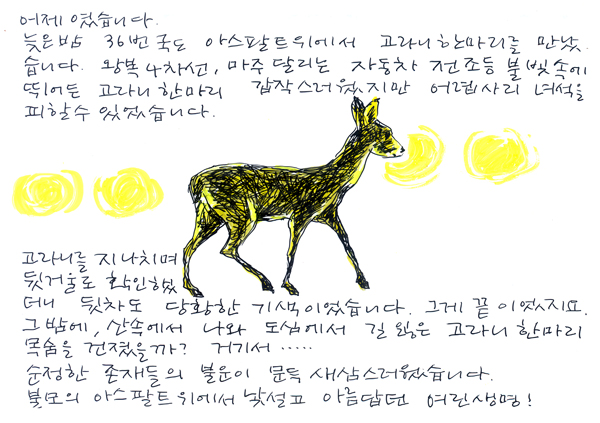 어제 였습니다.
늦은밤 36번 국도 아스팔트위에서 고라니 한마리를 만났
습니다. 왕복 4차선, 마주 달리는 자동차 전조등 불빛속에
뛰어든 고라니 한마리 갑작스러웠지만 어렵사리 녀석을
피할수 있었습니다.
고라니를 지나치며
뒷거울로 확인하였
더니 뒷차도 당황한 기색이었습니다. 그게 끝이었지요.
그밤에, 산속에서 나와 도심에서 길 잃은 고라니 한마리
목숨을 건졌을까? 거기서 ......
순정한 존재들의 불운이 문득 새삼스러웠습니다.
불모의 아스팔트위에서 낯설고 아름답던 여린생명!